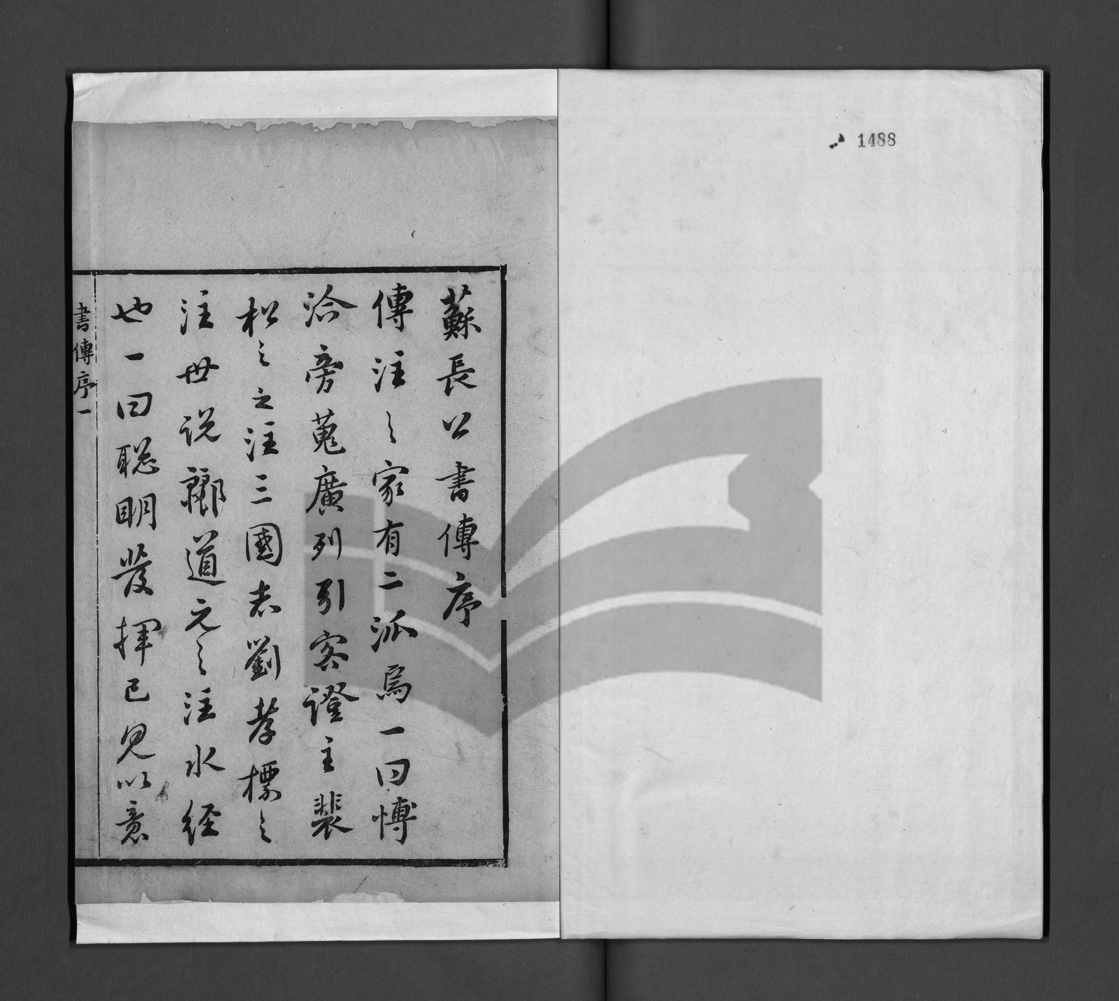 1488
蘇長公書傳序
傳注之家有二派焉一曰博
洽旁蒐廣列引客證主裴
松之之注三國志劉孝標之
注世说酈道元之注水经
也一曰聪明發揮己見以意
書傳序一